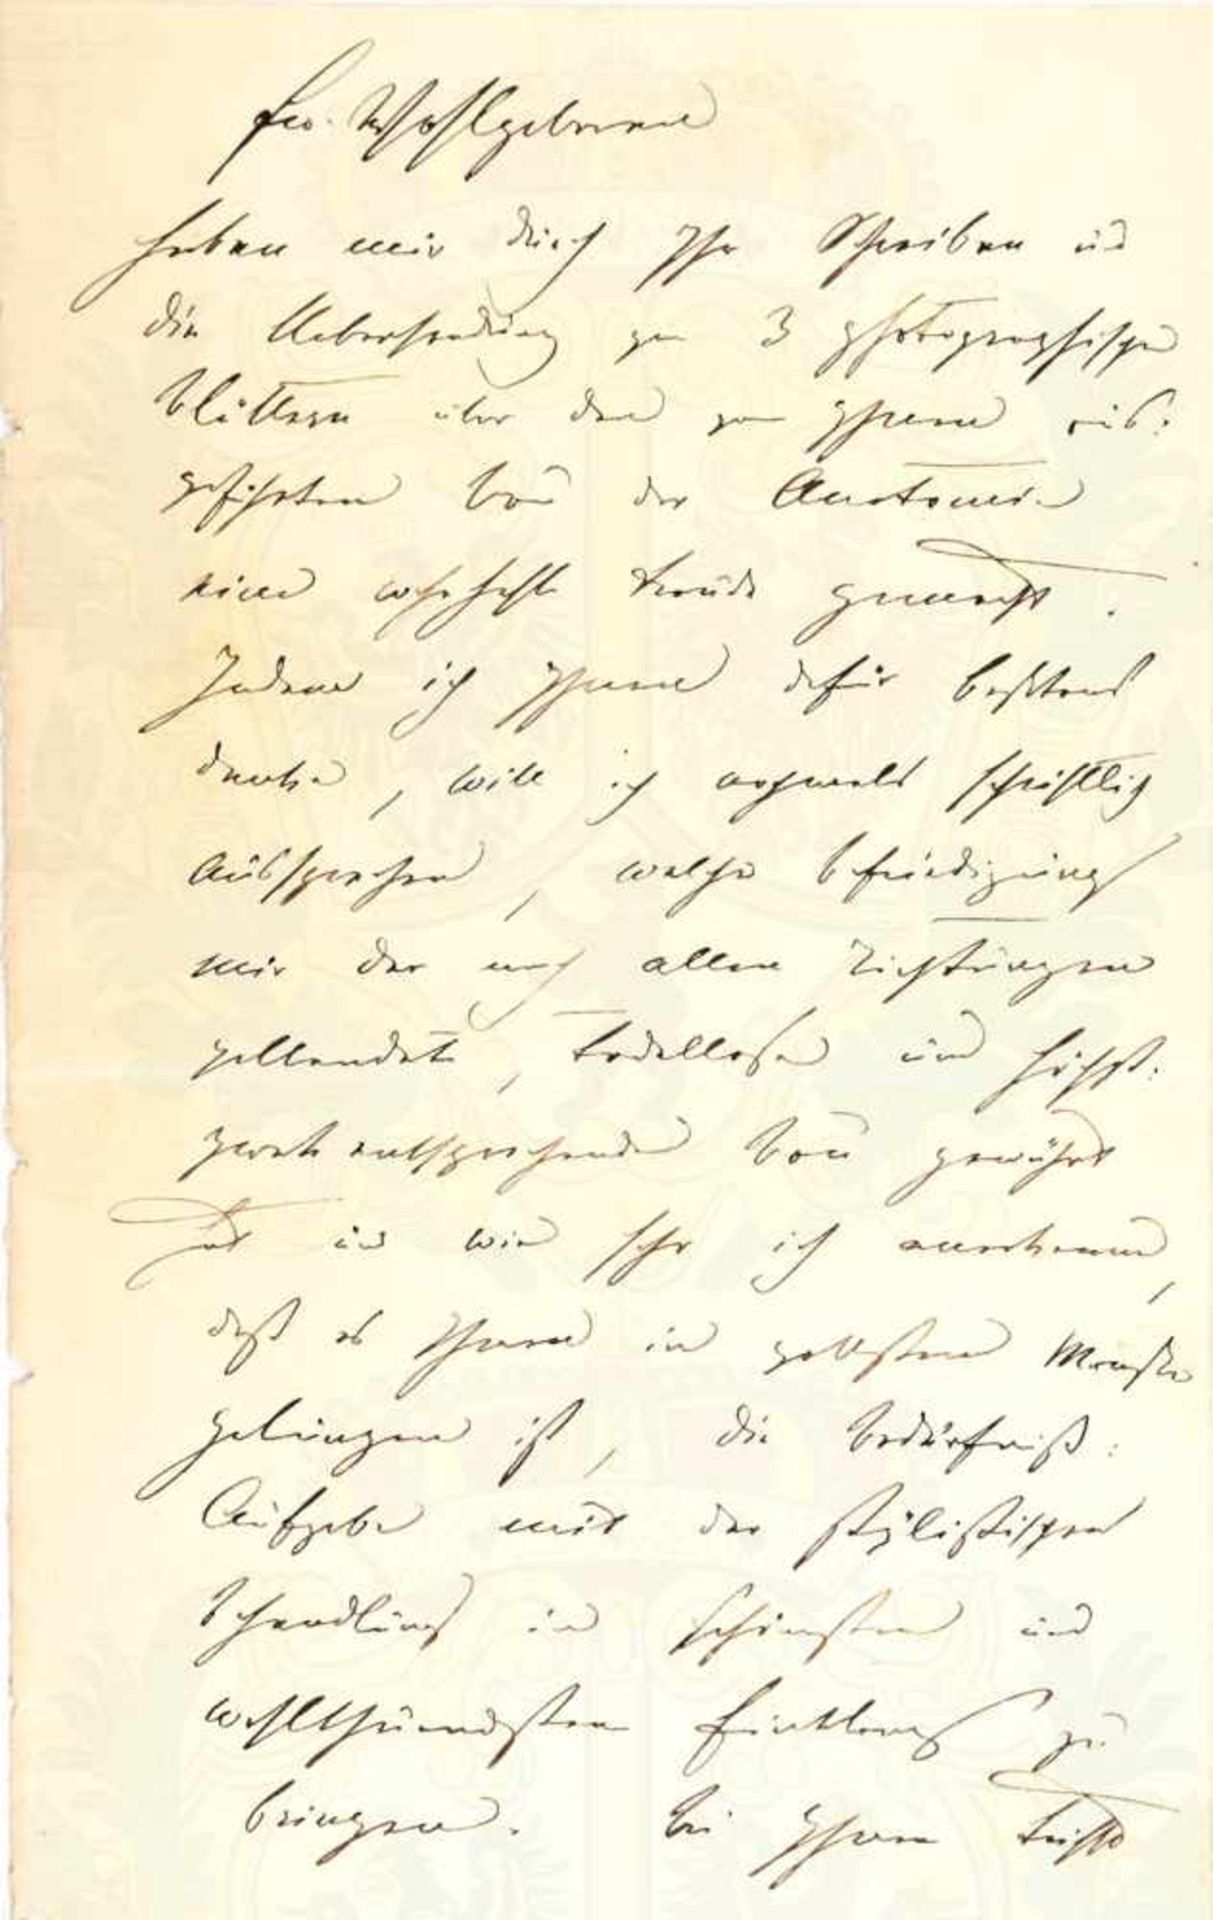 Ew. Wohlgeboren
haben mir durch Ihr Schreiben und
die Uebersendung von 3 photographischen
Blättern über den von Ihnen aus:
geführten Bau der Anatomie
eine wahrhafte Freude gemacht.
Indem ich Ihnen dafür bestens
danke, will ich nochmals schriftlich
aussprechen, welche Befriedigung
mir der nach allen Richtungen
vollendete, tadellose und höchst:
zweckentsprechende Bau gewährt
hat und wie sehr ich anerkenne,
daß es Ihnen in vollstem Maaße
gelungen ist, die Bedürfniß:
Aufgabe mit der stylistischen
Behandlung in schönsten und
wohlthuendsten Einklang zu
bringen. Bei Ihrem